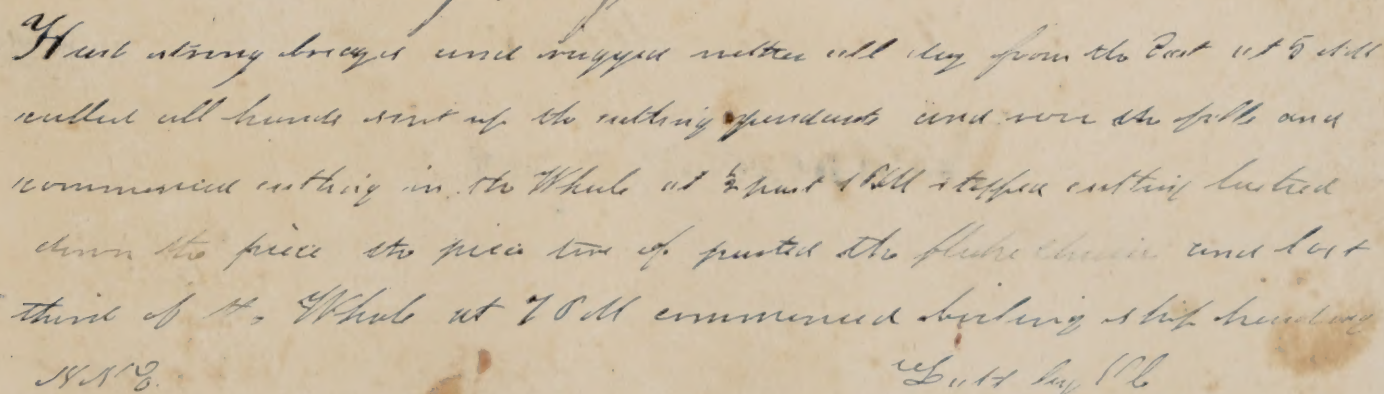 Hard strong breezes and rugged wether all day from the East at 5 AM
called all hands sent up the cutting pendants and rove the falls and
commenced cutting in the Whale at ½ past 1 PM stopped cutting lashed
down the piece the piece tore of parted the fluke chain and lost
third of the Whale at 7 PM commenced boiling ship heading
NNE. Latt by